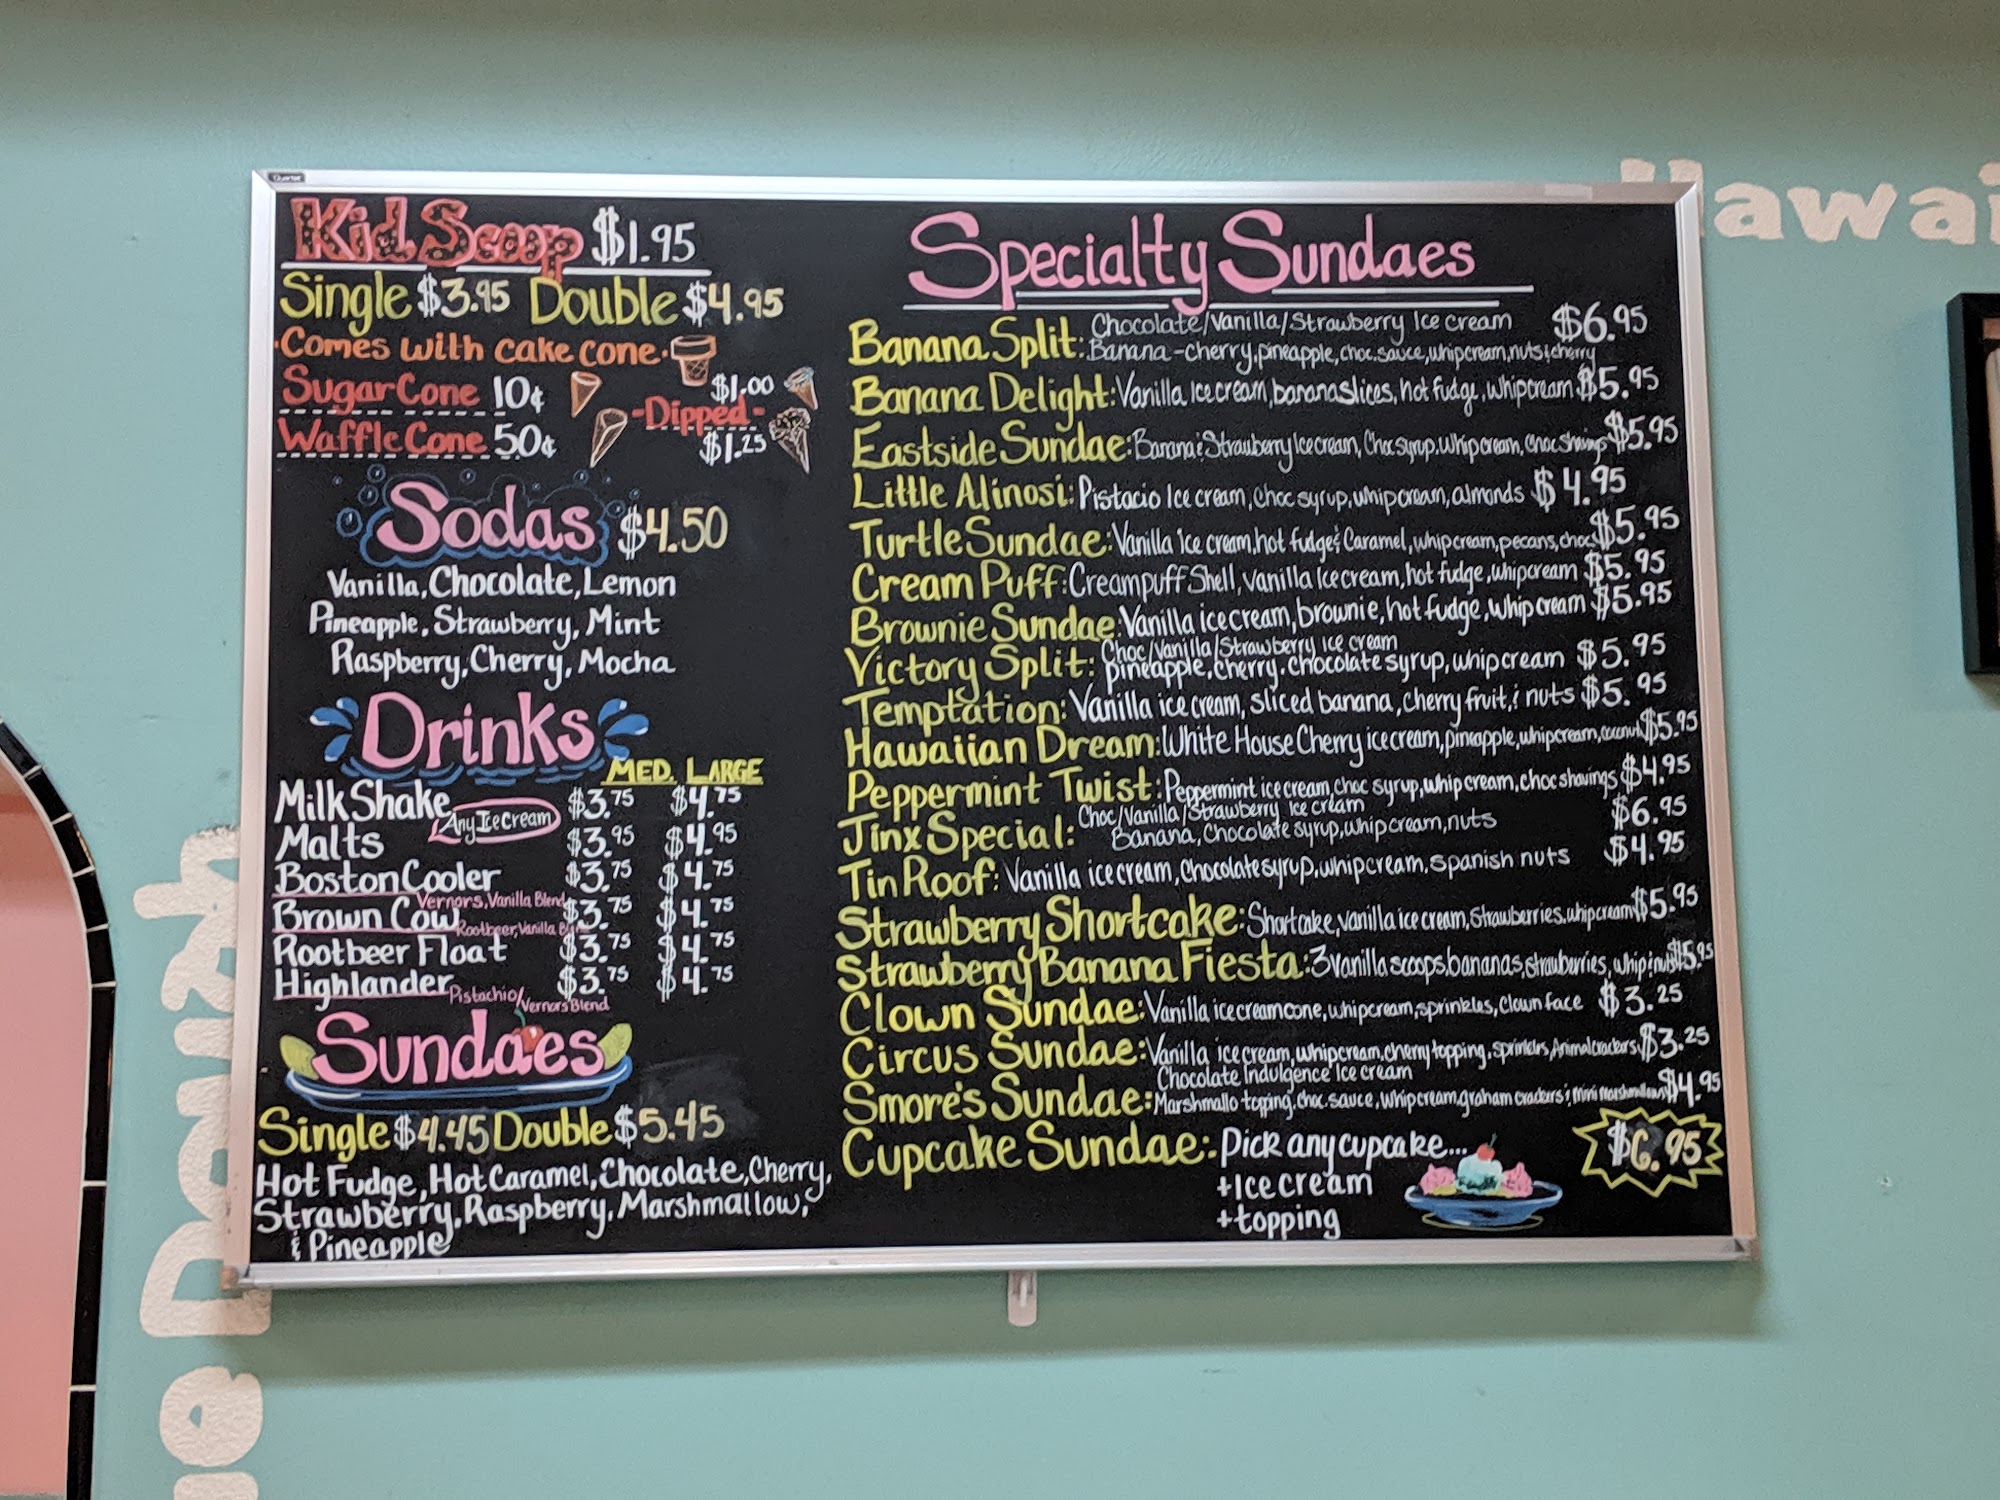 Quartet
Kid Scoop $1.95
Single $3.95 Double $4.95
·Comes with cake cone·
Sugar Cone 10¢
Waffle Cone 50¢
$1.00
-Dipped-
$1.25
Sodas $4.50
Vanilla, Chocolate, Lemon
Pineapple, Strawberry, Mint
Raspberry, Cherry, Mocha
Drinks
MED. LARGE
Milk Shake $3.75 $4.75
Any Ice Cream
Malts $3.95 $4.95
Boston Cooler $3.75 $4.75
Vernors, Vanilla Blend
Brown Cow $3.75 $4.75
Rootbeer, Vanilla Blend
Rootbeer Float $3.75 $4.75
Highlander $3.75 $4.75
Pistachio/Vernors Blend
Sundaes
Single $4.45 Double $5.45
Hot Fudge, Hot Caramel, Chocolate, Cherry,
Strawberry, Raspberry, Marshmallow,
& Pineapple
Specialty Sundaes
Banana Split: Chocolate/Vanilla/Strawberry Ice cream $6.95
Banana-cherry, pineapple, choc. sauce, whip cream, nuts & cherry
Banana Delight: Vanilla Ice cream, banana slices, hot fudge, whip cream $5.95
Eastside Sundae: Banana & Strawberry Ice cream, Choc syrup, whip cream, choc shavings $5.95
Little Alinosi: Pistacio Ice cream, choc syrup, whip cream, almonds $4.95
Turtle Sundae: Vanilla Ice cream, hot fudge & Caramel, whip cream, pecans, choc $5.95
Cream Puff: Creampuff Shell, vanilla Ice cream, hot fudge, whip cream $5.95
Brownie Sundae: Vanilla ice cream, brownie, hot fudge, whip cream $5.95
Victory Split: Choc/Vanilla/Strawberry ice cream
pineapple, cherry, chocolate syrup, whip cream $5.95
Temptation: Vanilla ice cream, sliced banana, cherry fruit, & nuts $5.95
Hawaiian Dream: White House Cherry ice cream, pineapple, whip cream, coconut $5.95
Peppermint Twist: Peppermint ice cream, choc syrup, whip cream, choc shavings $4.95
Jinx Special: Choc/Vanilla/Strawberry Ice cream $6.95
Banana, Chocolate syrup, whip cream, nuts
Tin Roof: Vanilla ice cream, chocolate syrup, whip cream, spanish nuts $4.95
Strawberry Shortcake: Shortcake, vanilla ice cream, strawberries, whip cream $5.95
Strawberry Banana Fiesta: 3 vanilla scoops, bananas, strawberries, whip & nuts $5.95
Clown Sundae: Vanilla ice cream cone, whip cream, sprinkles, clown face $3.25
Circus Sundae: Vanilla ice cream, whip cream, cherry topping, sprinkles, Animal crackers $3.25
Chocolate Indulgence Ice cream
Smore's Sundae: Marshmallo topping, choc. sauce, whip cream, graham crackers & mini marshmallows $4.95
Cupcake Sundae: Pick any cupcake... $6.95
+Ice cream
+topping
Hawai